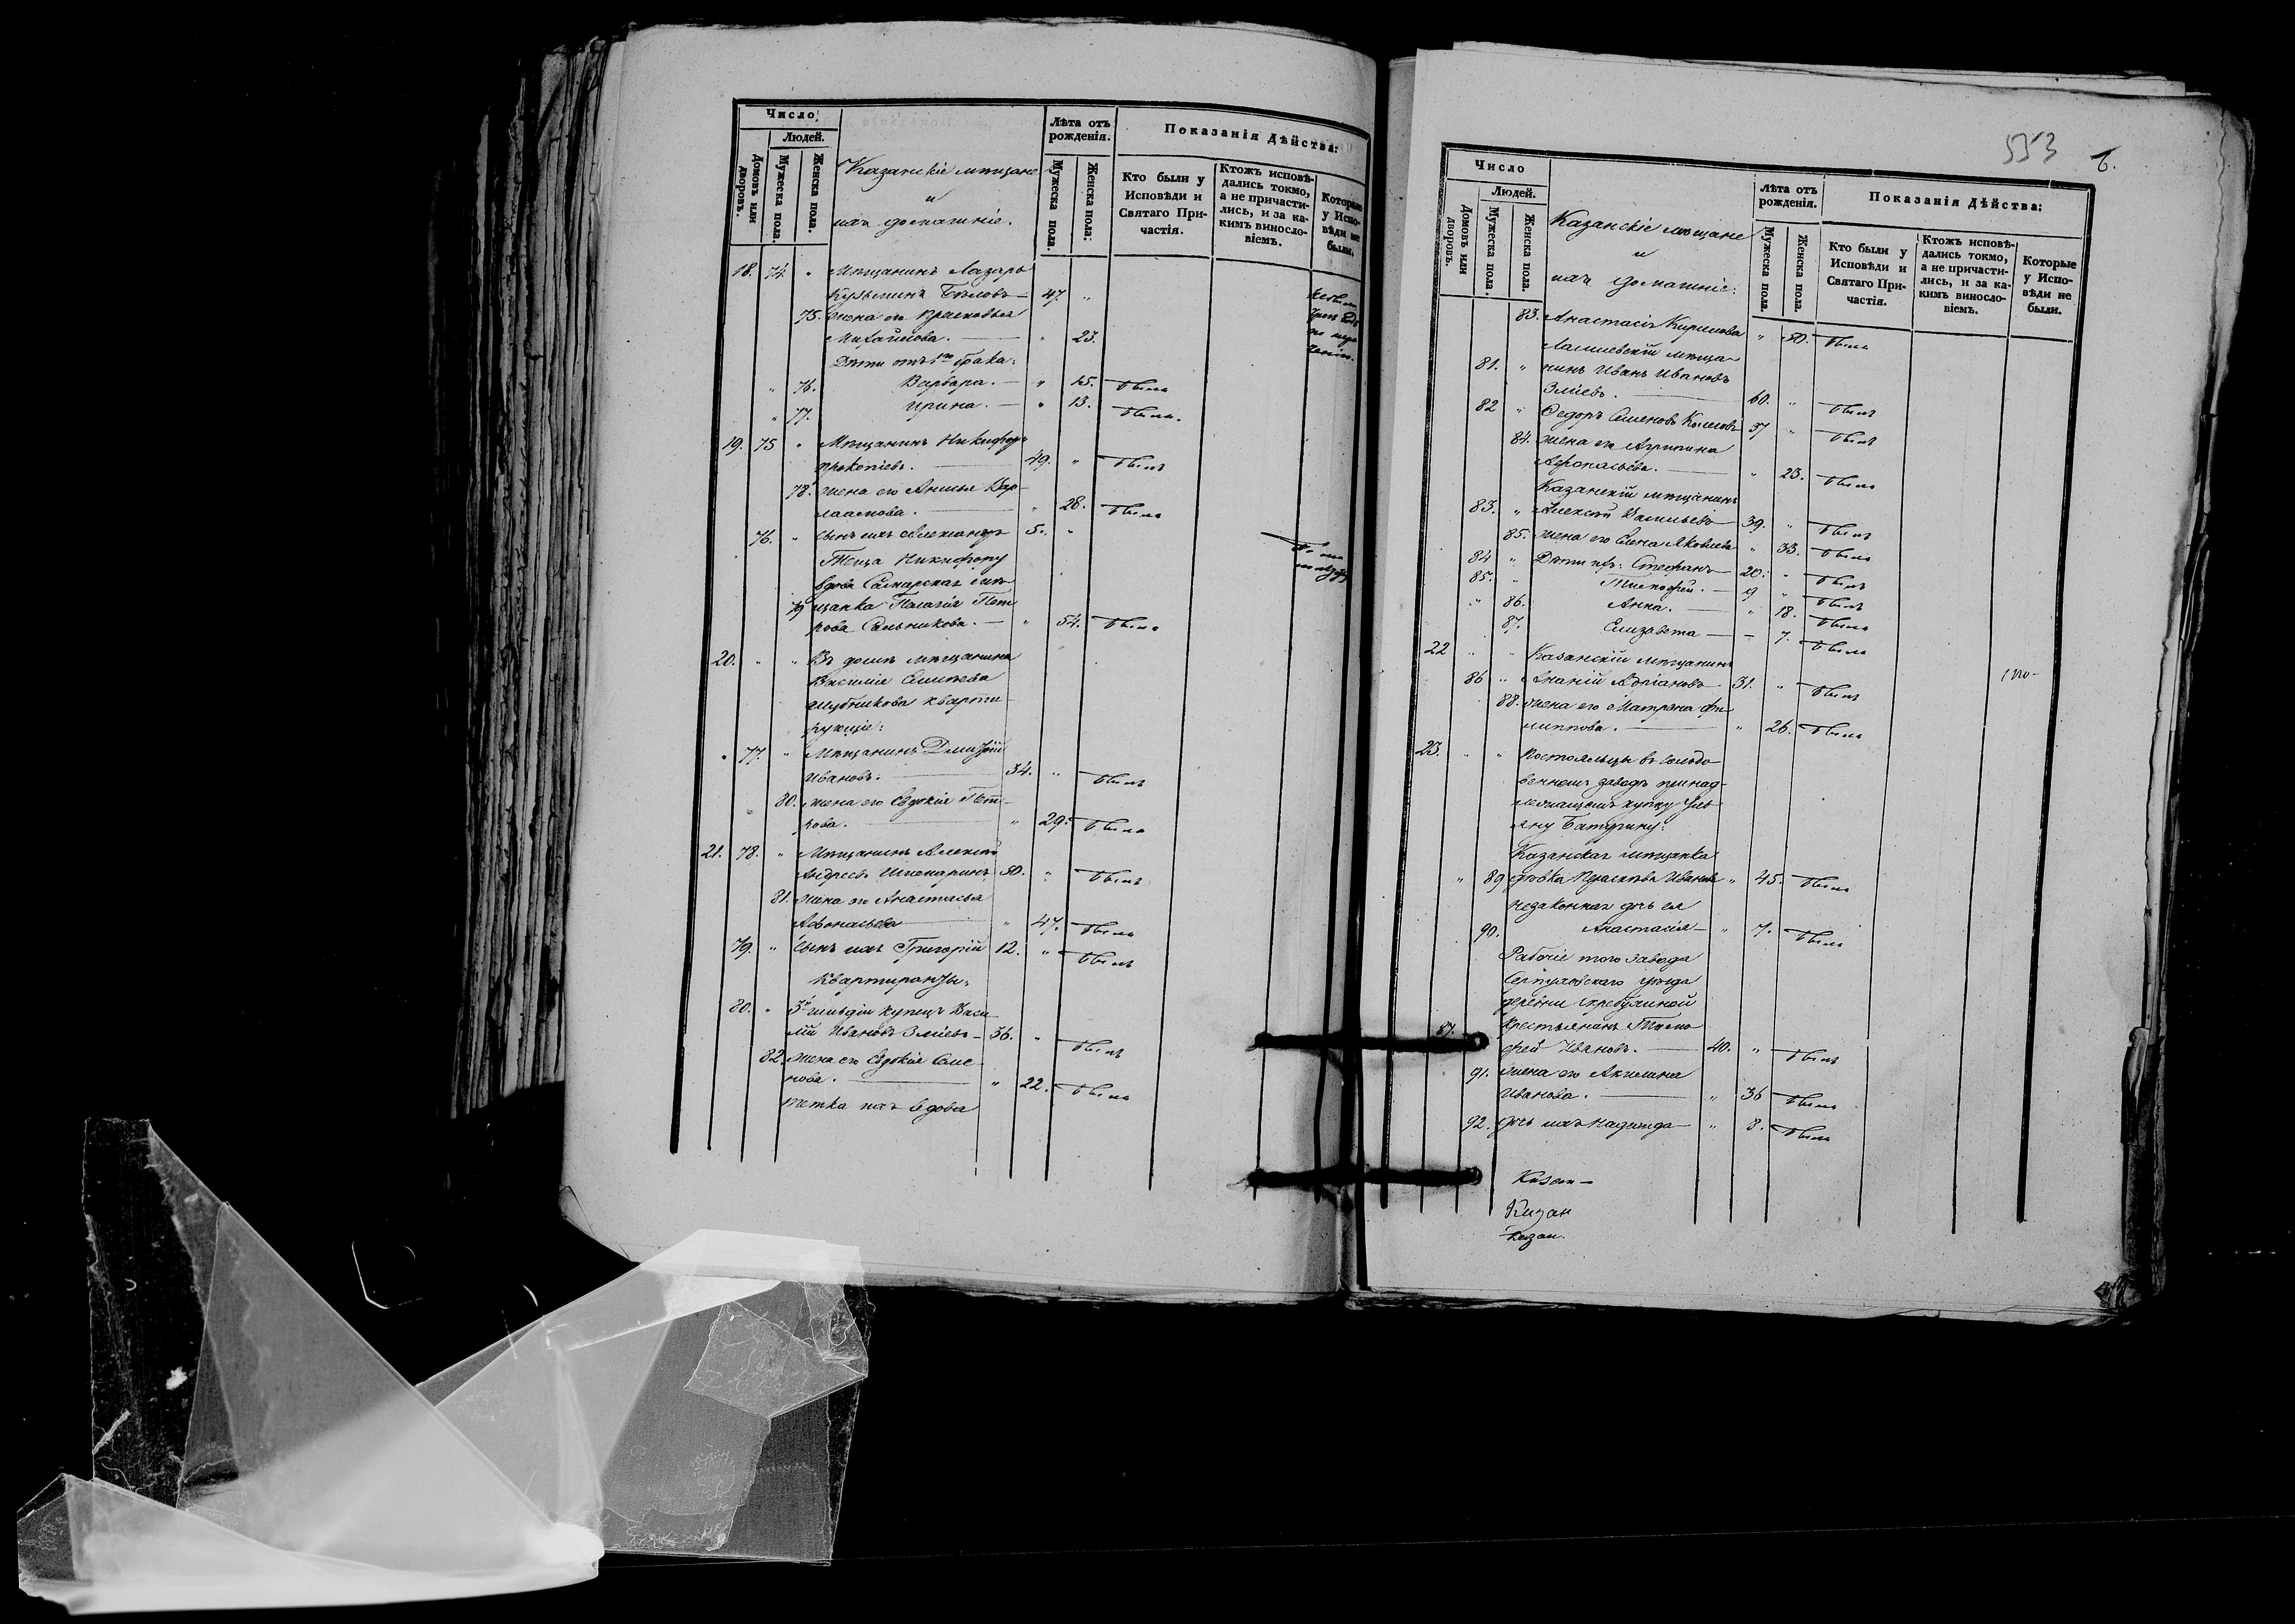 Число
Людей.
Домовъ или дворовъ.
Мужеска пола.
Женска пола.
Казанскіе мѣщане
и
ихъ домашніе.
Лѣта отъ рожденія.
Мужеска пола.
Женска пола.
Показанія Дѣйства:
Кто были у Исповѣди и Святаго Причастія.
Ктожъ исповѣдались токмо, а не причастились, и за какимъ винословіемъ.
Которые у Исповѣди не были.
18. 74. " Мѣщанинъ Лазарь
Кузьминъ Бѣловъ — 47. "
75. жена его Прасковья
Михайлова. — " 23.
Дѣти отъ 1го брака:
" 76. Варвара. — " 15. была
" 77. Ирина. — " 13. была.
19. 75 " Мѣщанинъ Никифоръ
Прокопіевъ. — 49. " былъ
78. жена его Анисья Вар-
лаамова. — " 28. была
76. " Сынъ ихъ Александръ 5. "
Теща Никифору
вдова Самарская мѣ-
79 щанка Пелагія Пет
рова Сальникова. — " 54. была
20. " " Въ домѣ мѣщанина
Василія
кварти
рующіе:
" 77. " Мѣщанинъ Дмитрій
Ивановъ. — 34. " былъ
80. жена его Евдокія Пет-
рова. — " 29. была
21. 78. " Мѣщанинъ Алексѣй
Андреевъ 50. " былъ
81. жена его Анастасья
Афонасьева — " 47. была
79. " Сынъ ихъ Григорій 12. " былъ
Квартиранты:
80. " 3й гильдіи купецъ Васи
лій Ивановъ Зміевъ — 36. " былъ
82. жена его Евдокія Семе-
нова. — " 22. была
тетка ихъ вдова
553 6.
Число
Людей.
Домовъ или дворовъ.
Мужеска пола.
Женска пола.
Казанскіе мѣщане
и
ихъ домашніе:
Лѣта отъ рожденія.
Мужеска пола.
Женска пола.
Показанія Дѣйства:
Кто были у Исповѣди и Святаго Причастія.
Ктожъ исповѣдались токмо, а не причастились, и за какимъ винословіемъ.
Которые у Исповѣди не были.
83. Анастасія Кирилова " 80. была
мѣща-
81. " нинъ Иванъ Ивановъ
Зміевъ. — 60. " былъ
82 " Федоръ Семеновъ 37 " былъ
84. жена его Агрипина
Афонасьева. — " 23. была
Казанскій мѣщанинъ
83. " Алексѣй Васильевъ 39. " былъ
85. жена его Елена Яковлева " 33. была
84 " Дѣти ихъ: Стефанъ — 20. " былъ
85. " Тимофей. — 9 " былъ
" 86. Анна. — " 18. была
87. Елизавета — — 7. была
22 " " Казанскій мѣщанинъ
86 " Ананій Адріановъ — 31. " былъ
88. жена его Матрена Фи-
липпова. — " 26. была
23. " " Постояльцы въ солодо
венномъ заводѣ принад-
лежащемъ купцу Уль
яну Батурину:
Казанская мѣщанка
" 89 дѣвка Прасковья Иванова " 45. была
незаконная дочь ея
90. Анастасія — " 7. была
Рабочіе того завода
Серпуховскаго уѣзда
деревни
87. крестьянинъ Тимо
фей Ивановъ. — 40. " былъ
91. жена его Акилина
Иванова. — " 36 была
92. дочь ихъ Надежда — " 8. была
Казан —
Казан
Казан.